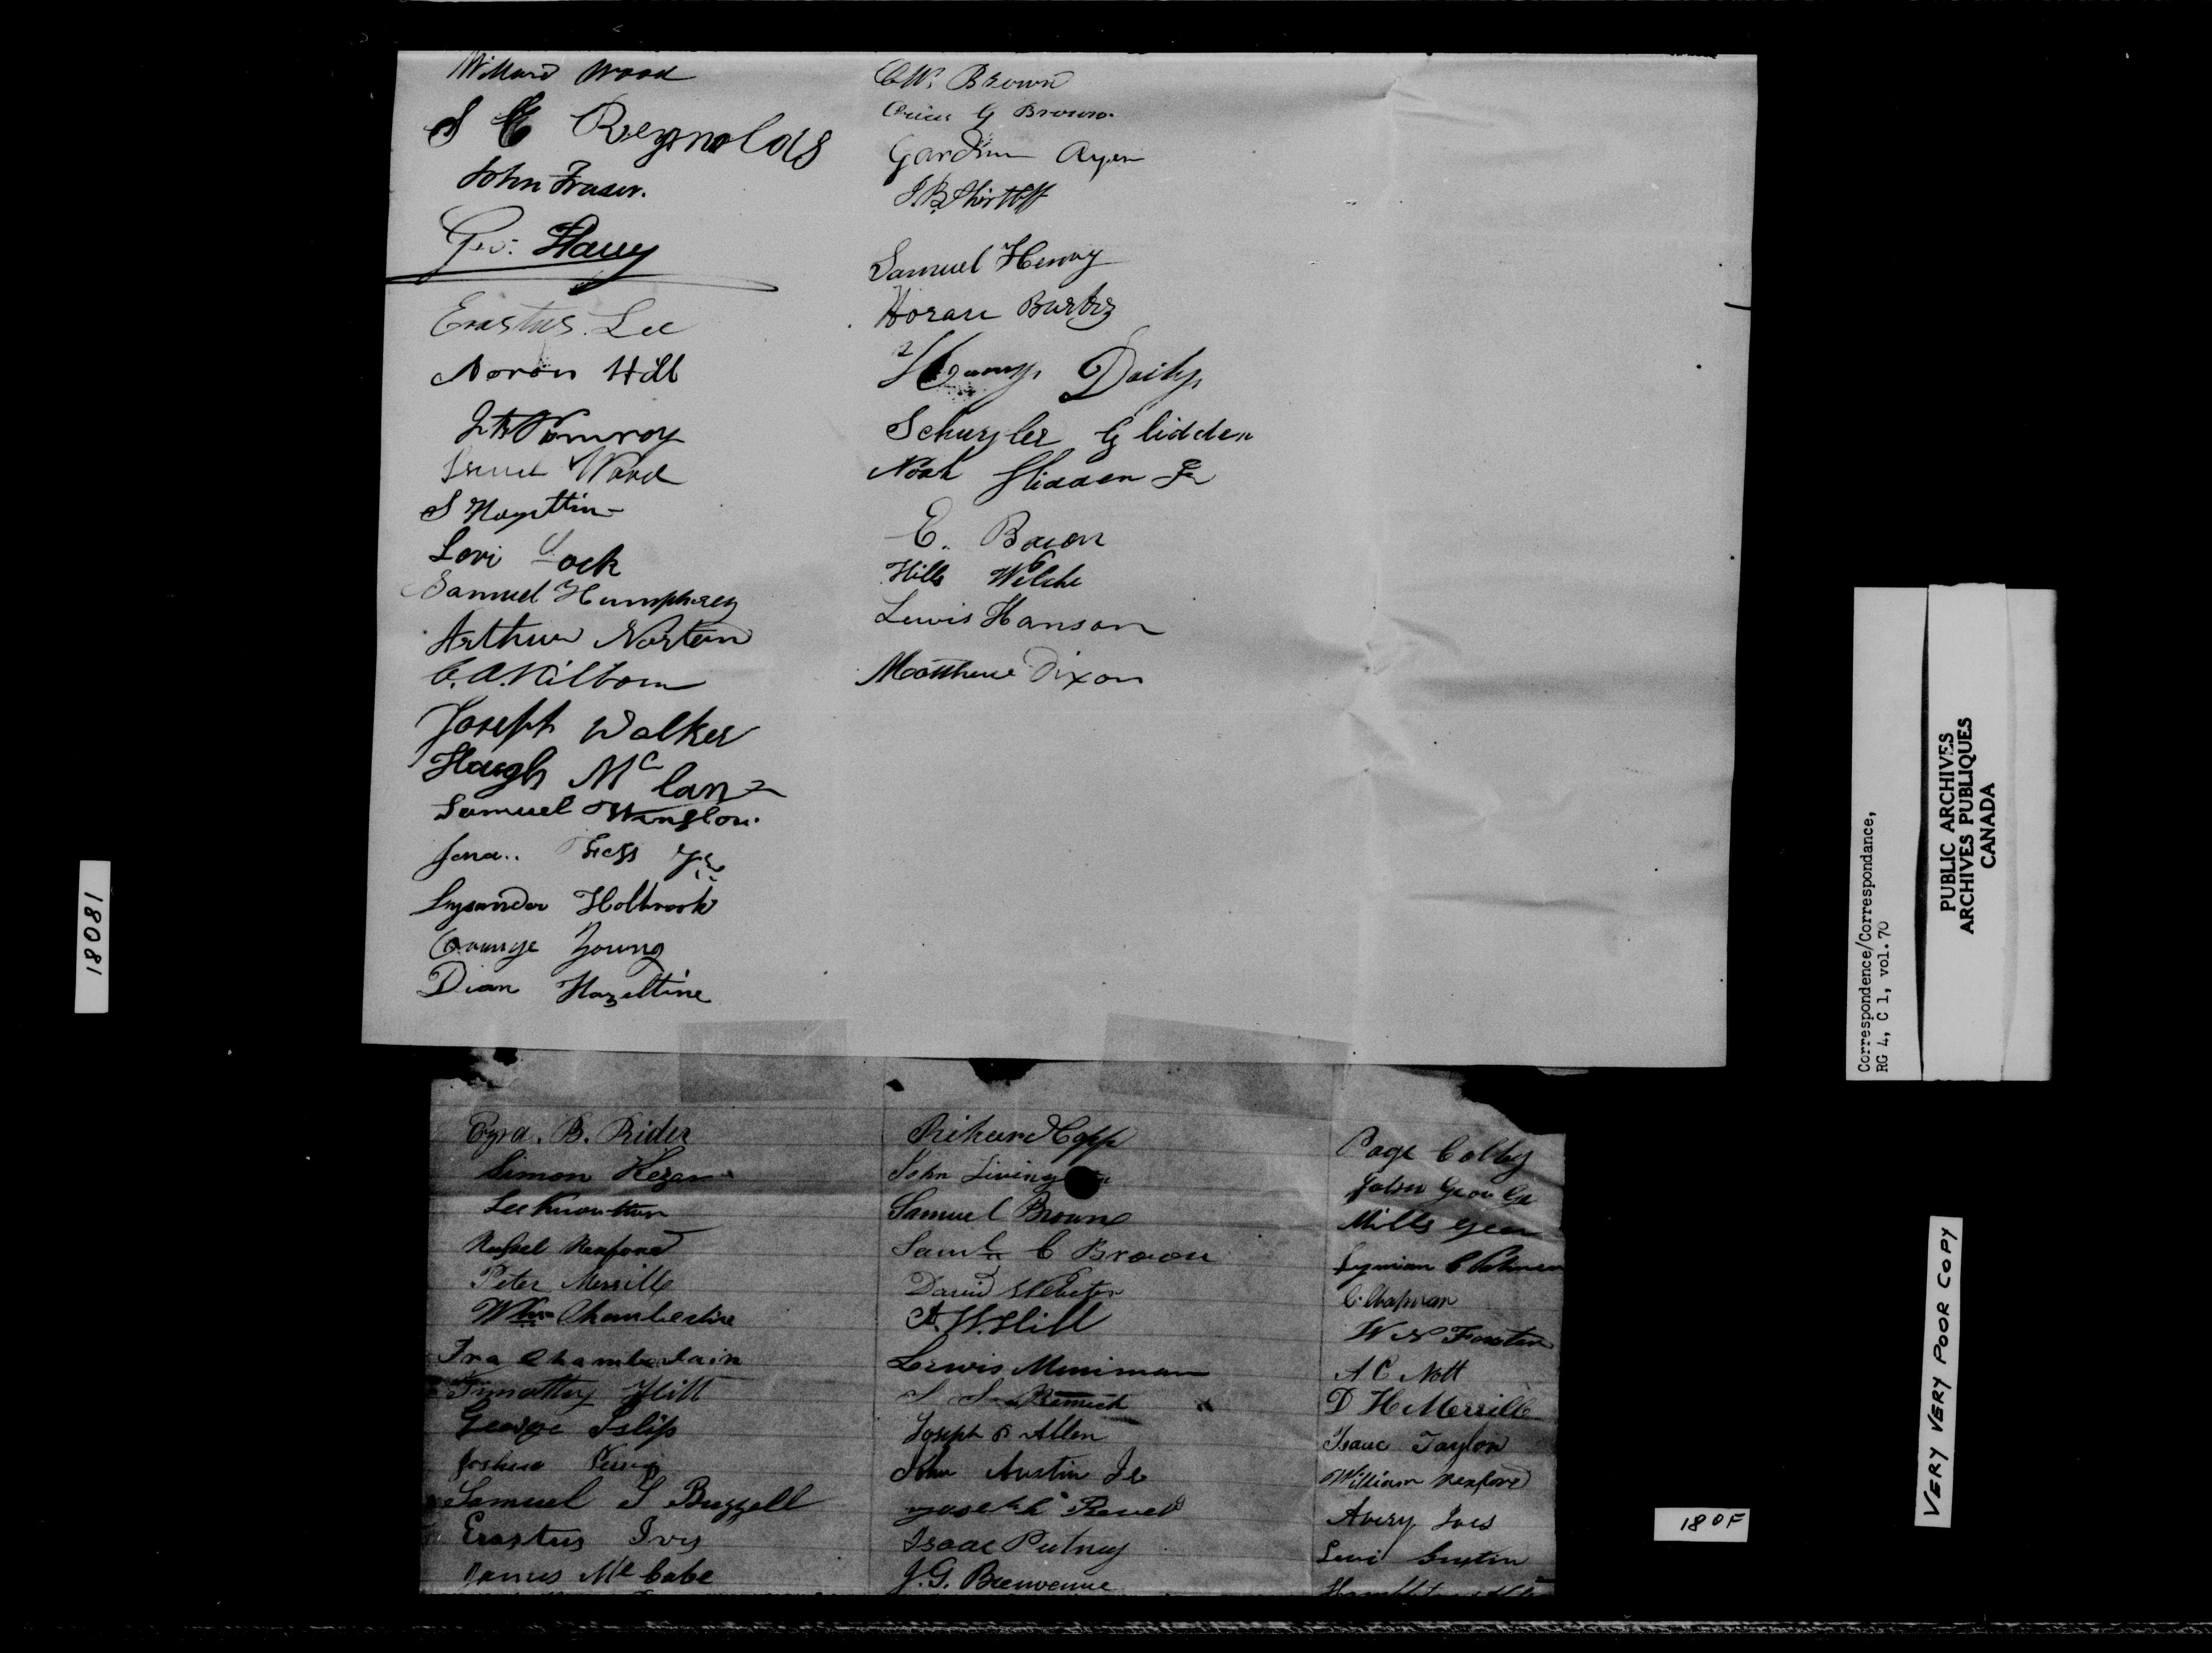 Willard Wood
S E Reynolds
John Fraser.
Geo:
Erastus Lee
Aaron Hill
Pomroy
Wood
S
Levi
Samuel Humphrey
Arthur Norton
C.A. Kilborn
Joseph Walker
Haugh Mc lane
Samuel Winslow.
Jr
Lysander Holbrook
Orange Young
Dian Hazeltine
C W. Brown
G Brown.
Gardner Ayer
S.B. Shirtliff
Samuel Henry
Horace
Daily
Schuyler Glidden
Noah Glidden Jr
E. Bacon
Hills Welch
Lewis Hanson
Matthew Dixon
Ezra. B. Rider
Simon Kezar
Lee Knowlton
Rexford
Peter Merrill
Wm Chamberlin
Ira Chamberlain
Timothy Hitt
George Islip
Joshua
Samuel S Buzzell
Erastus Ives
James Mc Cabe
Richard Copp
John Living
Samuel Brown
Saml C Brown
David Webster
A. W. Hill
Lewis Merriman
S S Remick
Joseph S Allen
John Austin Jr
Joseph
Isaac Putney
J. G. Bienvenue
Page Colby
Mills
Lyman
C. Chapman
W N Foster
A C Nott
D H Merrill
Isaac Taylor
William Rexford
Avery Ives
Levi
18081
Correspondence/Correspondance,
RG 4, C 1, vol. 70
PUBLIC ARCHIVES
ARCHIVES PUBLIQUES
CANADA
VERY VERY POOR COPY
180F